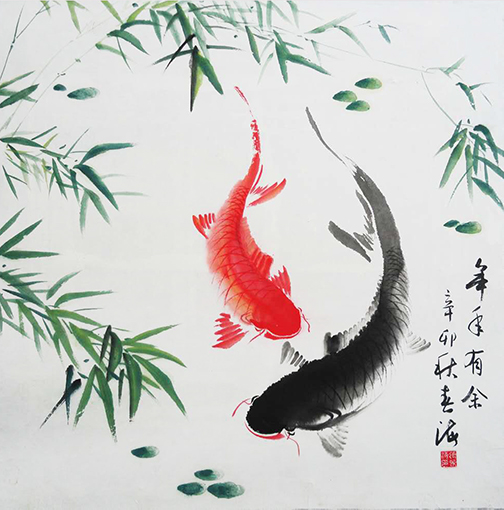 年年有余
辛卯秋春海